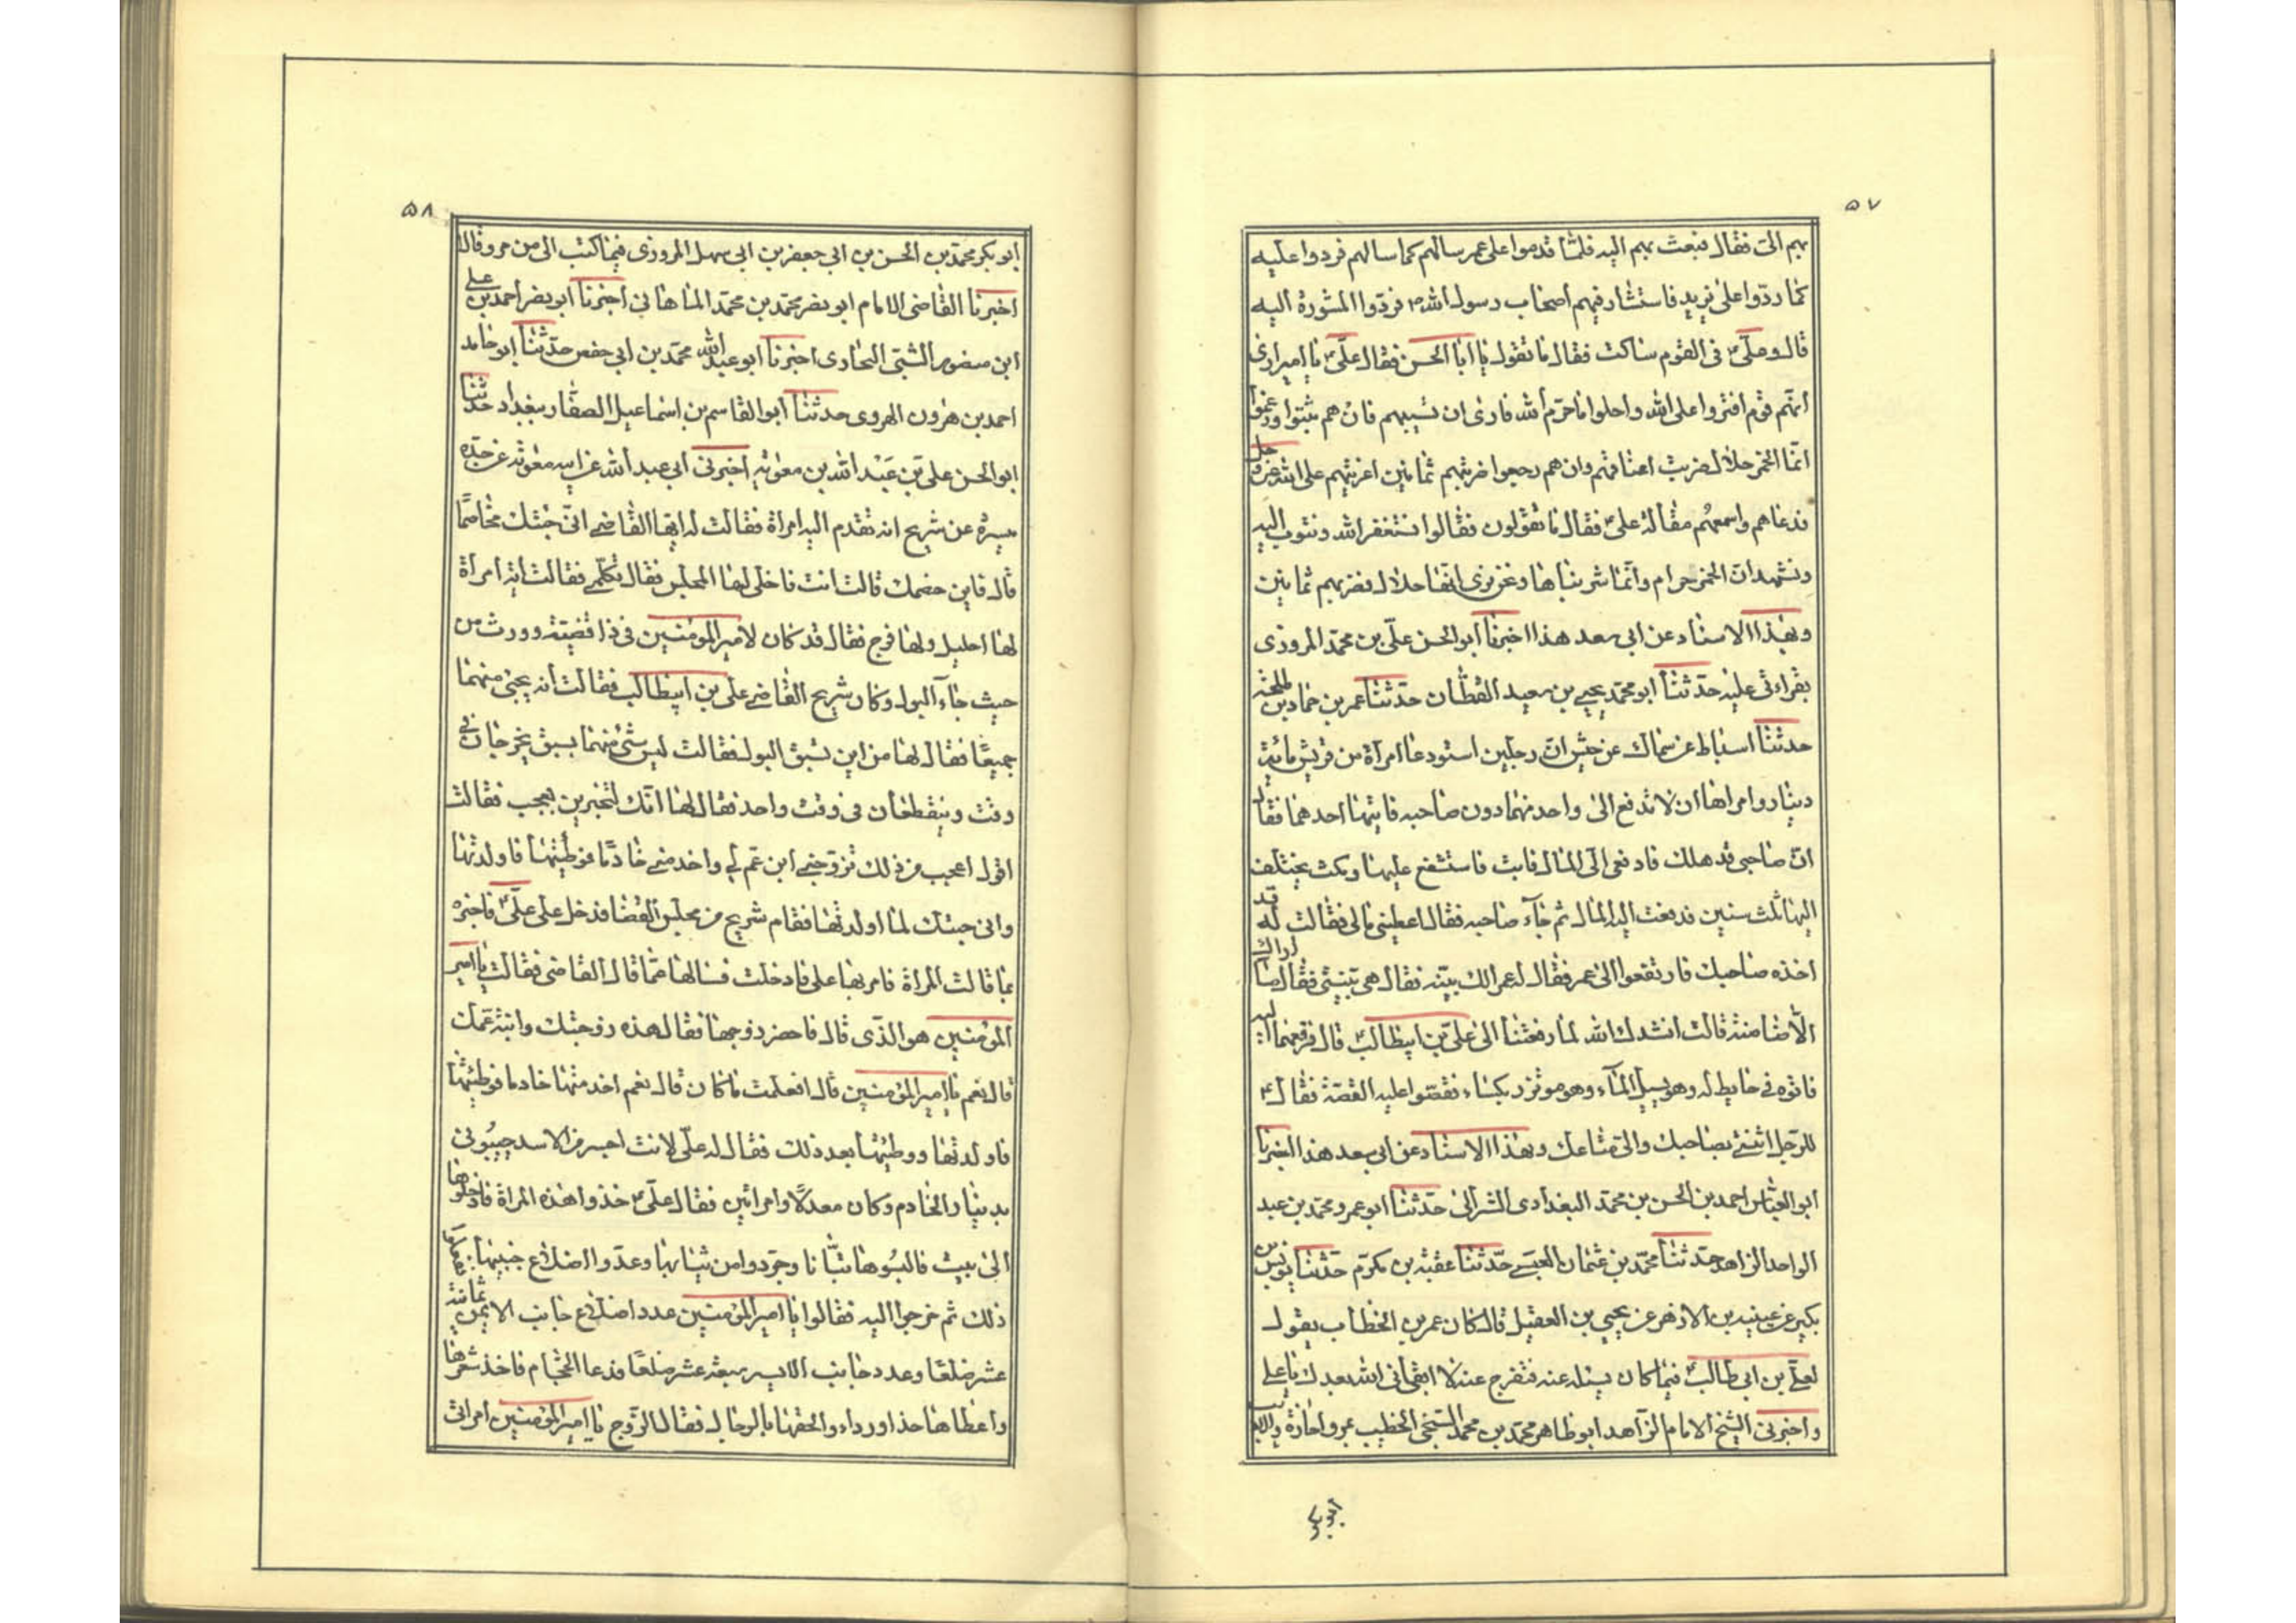 ٥٧
بهم الىّ فقال فبعث بهم اليه فلمّا قدموا على عمر سالهم كما سالهم فردوا عليه
كما ردّوا على يزيد فاستشار فيهم اصحاب رسول الله ص فردّوا المشورة اليه
قال وعلىّ ع فى القوم ساكت فقال ما تقول يا ابا الحسن فقال علىّ ع يا امير ارى
انّهم قوم افتروا على الله واحلوا ما حرّم الله فارى ان تستيبهم فان هم ثبتوا وزعموا
انّما الخمر حلال ضربت اعناقهم وان هم رجعوا ضربتهم ثمانين لفريتهم على الله عز وجل
فدعاهم واسمعهم مقالة على ع فقال ما تقولون فقالوا نستغفر الله ونتوب اليه
ونشهد ان الخمر حرام وانّما شربناها ونحن نرى انها حلال فضربهم ثمانين
وبهذا الاسناد عن ابى سعد هذا اخبرنا ابو الحسن علىّ بن محمّد المروزى
بقراءتى عليه حدّثنا ابو محمّد يحيى بن سعيد القطّان حدّثنا عمر بن حماد بن طلحة
حدثنا اسباط عن سماك عن حنش انّ رجلين استودعا امرأة من قريش مائة
دينار وامراها ان لا تدفع الى واحد منهما دون صاحبه فاتيها احدهما فقال
انّ صاحبى قد هلك فادفعى الىّ المال فابت فاستشفع عليها ومكث يختلف
اليها ثلث سنين فدفعت اليه المال ثم جآء صاحبه فقال اعطينى مالى فقالت له قد
اخذه صاحبك فارتفعوا الى عمر فقال له عمر الك بيّنه فقال هى بيّنتى فقال ما اراك
الاّ ضامنة قالت انشدك الله لما رفعتنا الى علىّ بن ابيطالب ع قال فرفعهما اليه
فاتوه فى حايط له وهو يسيل المآء وهو موتزر بكساء فقصّوا عليه القصّة فقال ع
للرّجل ائتنى بصاحبك والىّ متاعك وبهذا الاسناد عن ابى سعد هذا اخبرنا
ابو العبّاس احمد بن الحسن بن محمّد البغدادى الشرابى حدّثنا ابو عمرو محمّد بن عبد
الواحد الزاهد حدّثنا محمّد بن عثمان العبسى حدّثنا عقبة بن مكرّم حدّثنا يونس بن
بكير عن عنبسة بن الازهر عن يحيى بن العقيل قال كان عمر بن الخطاب يقول
لعلىّ بن ابى طالب ع فيما كان يسئله عنه فتفرج عنه لا ابقانى الله بعدك يا على
واخبرنى الشيخ الامام الزّاهد ابو طاهر محمّد بن محمد السّنجى الخطيب بمرو اجازة
٥٨
ابو بكر محمّد بن الحسن بن ابى جعفر بن ابى سهل المروزى فيما كتب الى من مرو قال
اخبرنا القاضى الامام ابو نصر محمّد بن محمّد الماهانى اخبرنا ابو نصر احمد بن على
ابن منصور السّنّى البخارى اخبرنا ابو عبد الله محمّد بن ابى حفص حدّثنا ابو حامد
احمد بن هرون الهروى حدثنا ابو القاسم بن اسماعيل الصفّار ببغداد حدثنا
ابو الحسن على بن عبد الله بن معوية اخبرنى ابى عبد الله عن ابيه معوية عن جدّه
ميسرة عن شريح انه تقدم اليه امرأة فقالت له ايها القاضى انّى جئتك مخاصمًا
قال فاين خصمك قالت انت فاخلى لها المجلس فقال تكلّمى فقالت انّى امرأة
لها احليل ولها فرج فقال قد كان لامير المؤمنين فى ذا قضيّة وورث من
حيث جآء البول وكان شريح القاضى على بن ابيطالب فقالت انه يجئ منهما
جميعًا فقال لها من اين تسبق البول فقالت ليس شئ منهما يسبق يخرجان فى
وقت وينقطعان فى وقت واحد فقال لها انّك لتخبرين بعجب فقالت
اقول اعجب من ذلك تزوّجنى ابن عم لى واخدمنى خادمًا فوطئتها فاولدتها
وانى جئتك لما اولدتها فقام شريح من مجلس القضا فدخل على علىّ ع فاخبره
بما قالت المرأة فامر بها على فادخلت فسالها عمّا قال القاضى فقالت يا امير
المؤمنين هو الذّى قال قال فاحضر زوجها فقال هذه زوجتك وابنة عمّك
قال نعم يا امير المؤمنين قال افعلمت ما كان قال نعم اخدمتها خادما فوطئتها
فاولدتها ووطئتها بعد ذلك فقال له علّى لانت اجسر من الاسد جيئونى
بدينار الخادم وكان معدلًا وامراتين فقال علّى ع خذوا هذه المرأة فادخلوها
الى بيت فالبسوها تبّانا وجرّدوا من ثيابها وعدّوا اضلاع جنبيها ففعلوا
ذلك ثم خرجوا اليه فقالوا يا امير المؤمنين عدد اضلاع جانب الايمن ثمانية
عشر ضلعًا وعدد جانب الايسر سبعة عشر ضلعًا فدعا الحجّام فاخذ شعرها
واعطاها حذا ورداء والحقها بالرجال فقال الزّوج يا امير المؤمنين امراتى